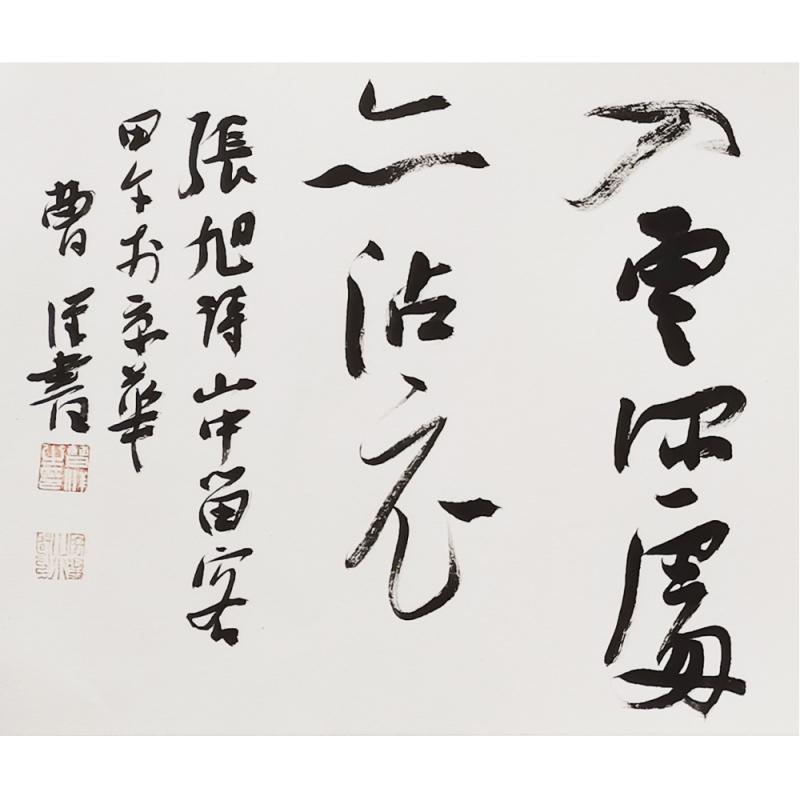 入雲深處
亦沾衣
張旭詩山中留客
甲午於京華
曹 書